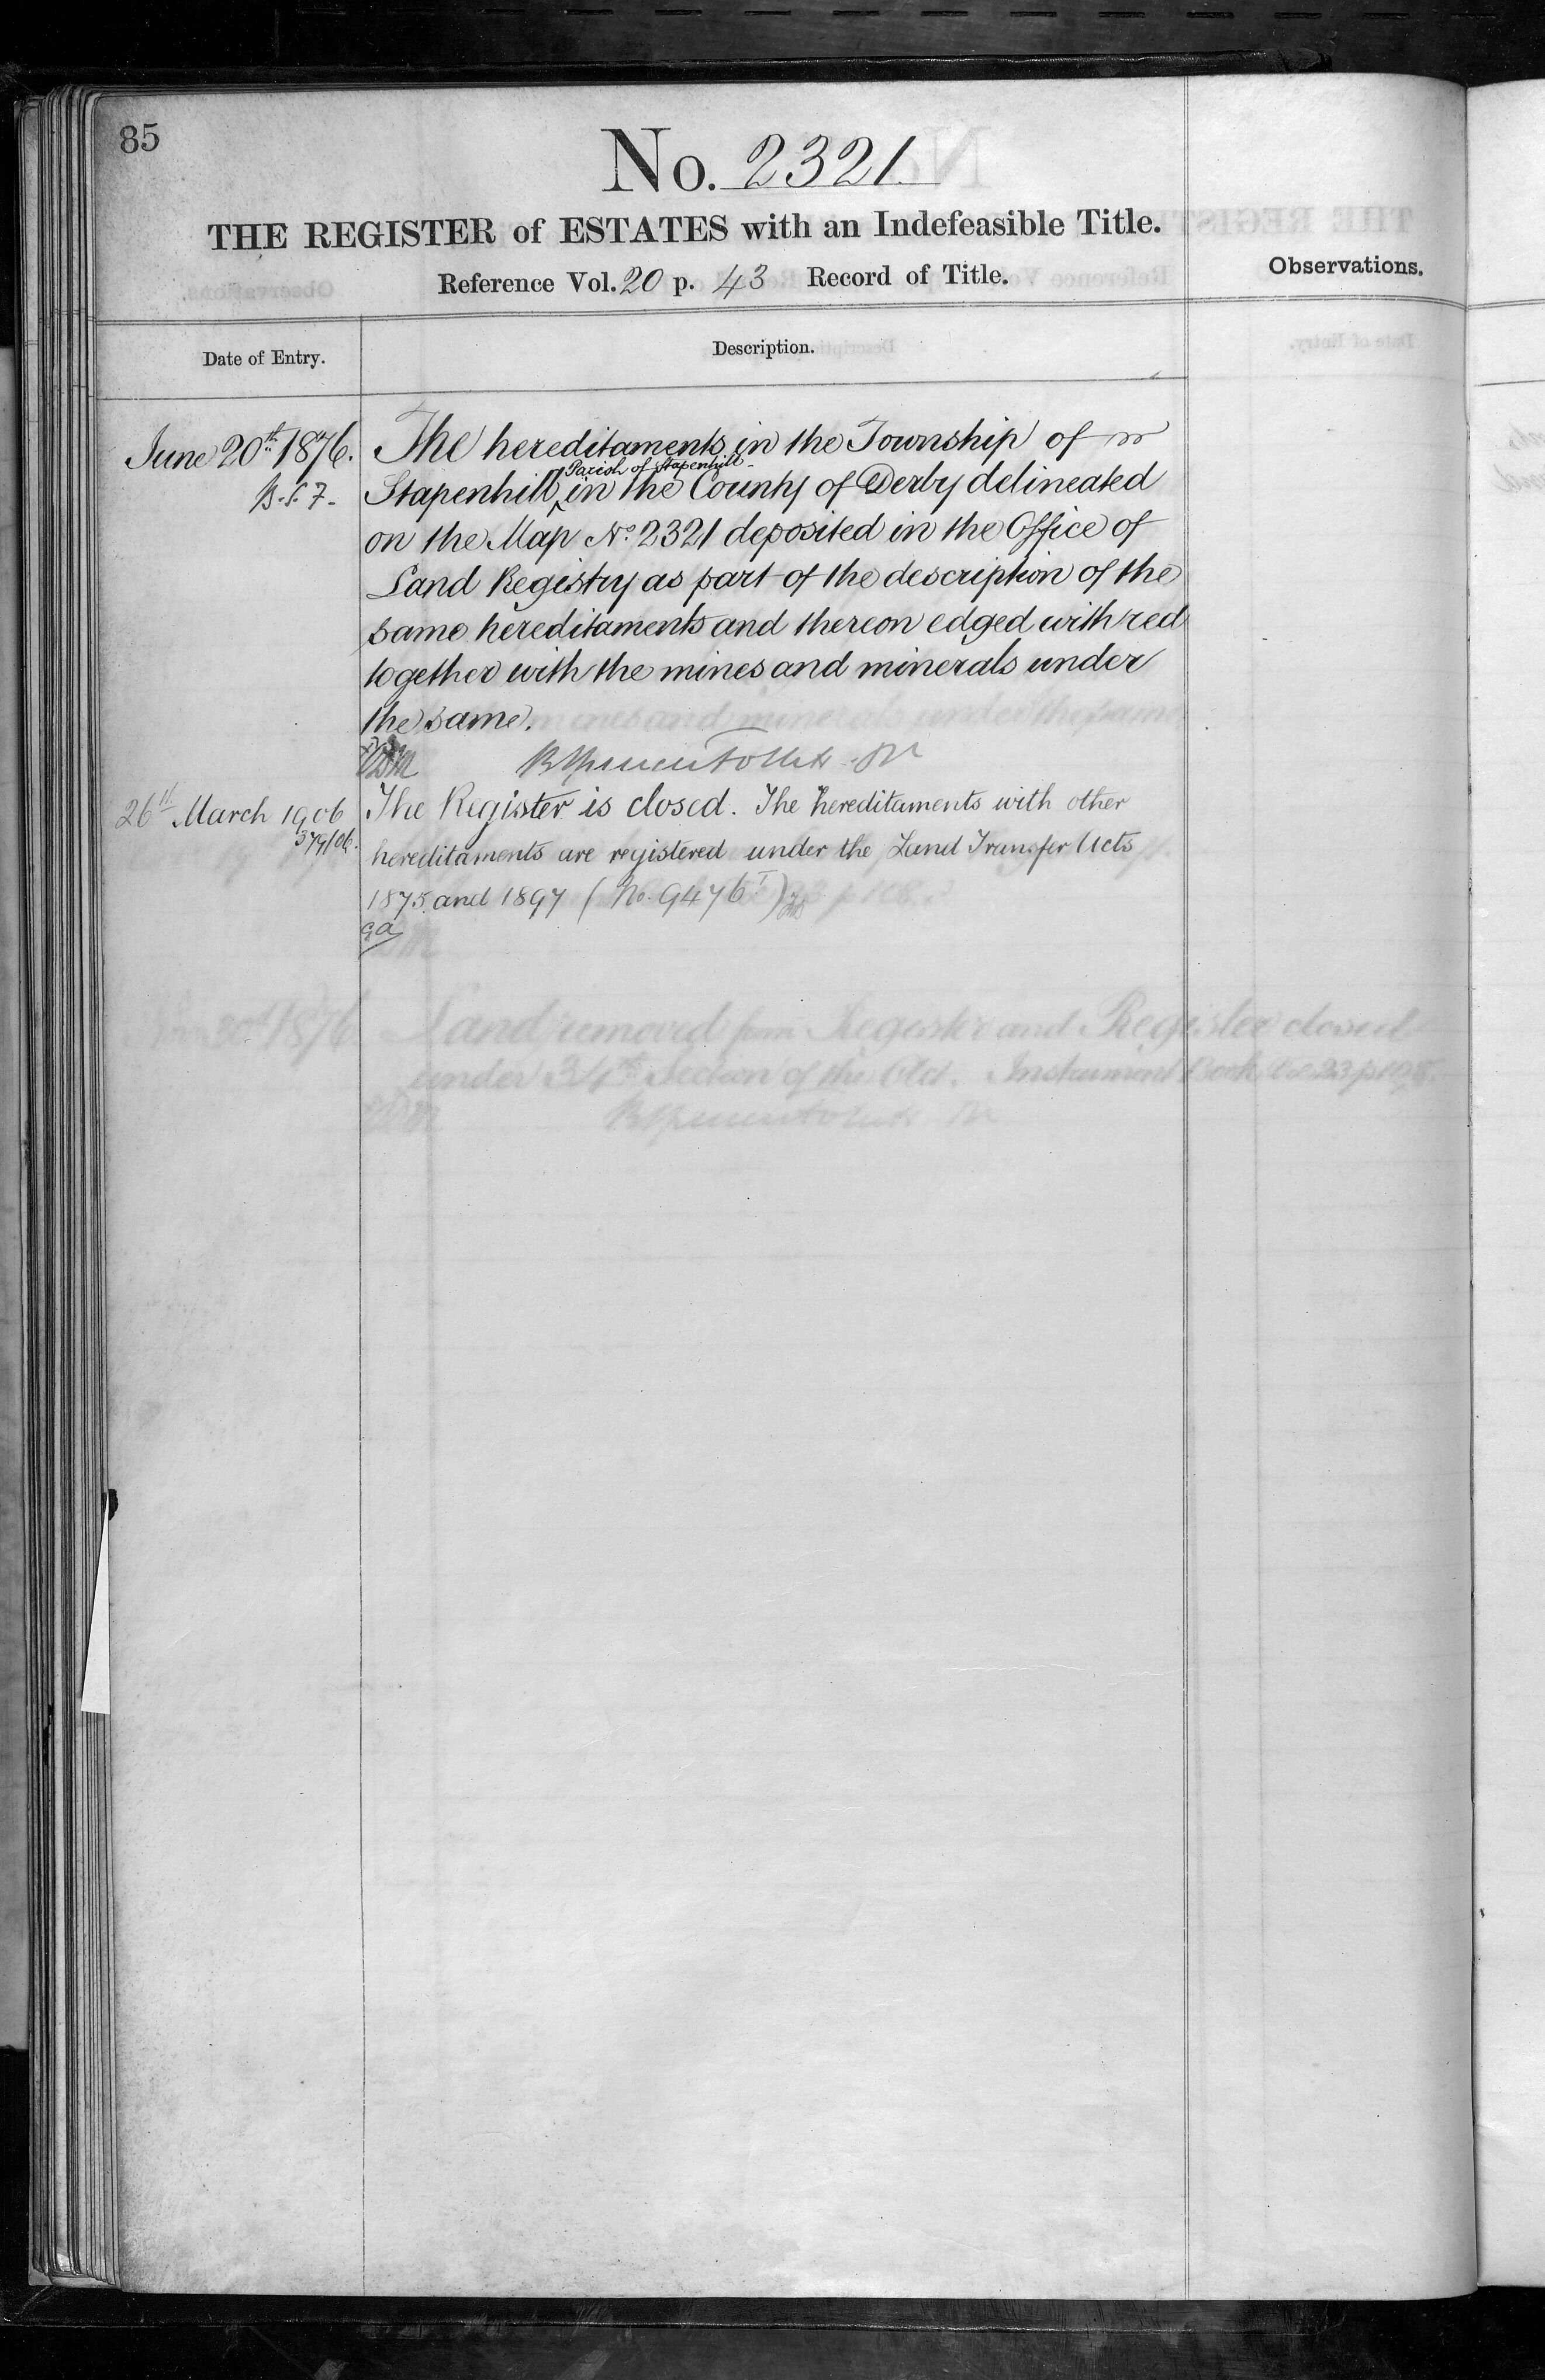 85
No. 2321
THE REGISTER of ESTATES with an Indefeasible Title.
Reference Vol. 20 p. 43 Record of Title.
Observations.
Date of Entry.
Description.
June 20th 1876.
The hereditaments in the Township of
Parish of Stapenhill
Stapenhill ‸ in the County of Derby delineated
on the Map No. 2321 deposited in the Office of
Land Registry as part of the description of the
same hereditaments and thereon edged with red
together with the mines and minerals under
the same.
26th March 1906
379/06.
The Register is closed. The hereditaments with other
hereditaments are registered under the Land Transfer Acts
1875 and 1897 (No. 9476